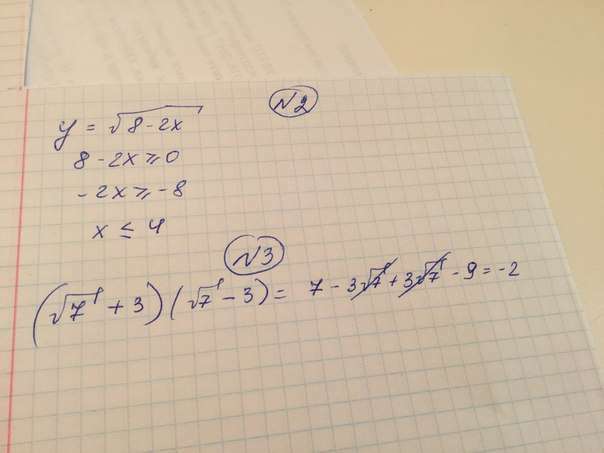 №2
y = √8-2x
8-2x ⩾ 0
-2x ⩾ -8
x ≤ 4
№3
(√7 + 3)(√7 - 3) = 7 - 3√7 + 3√7 - 9 = -2